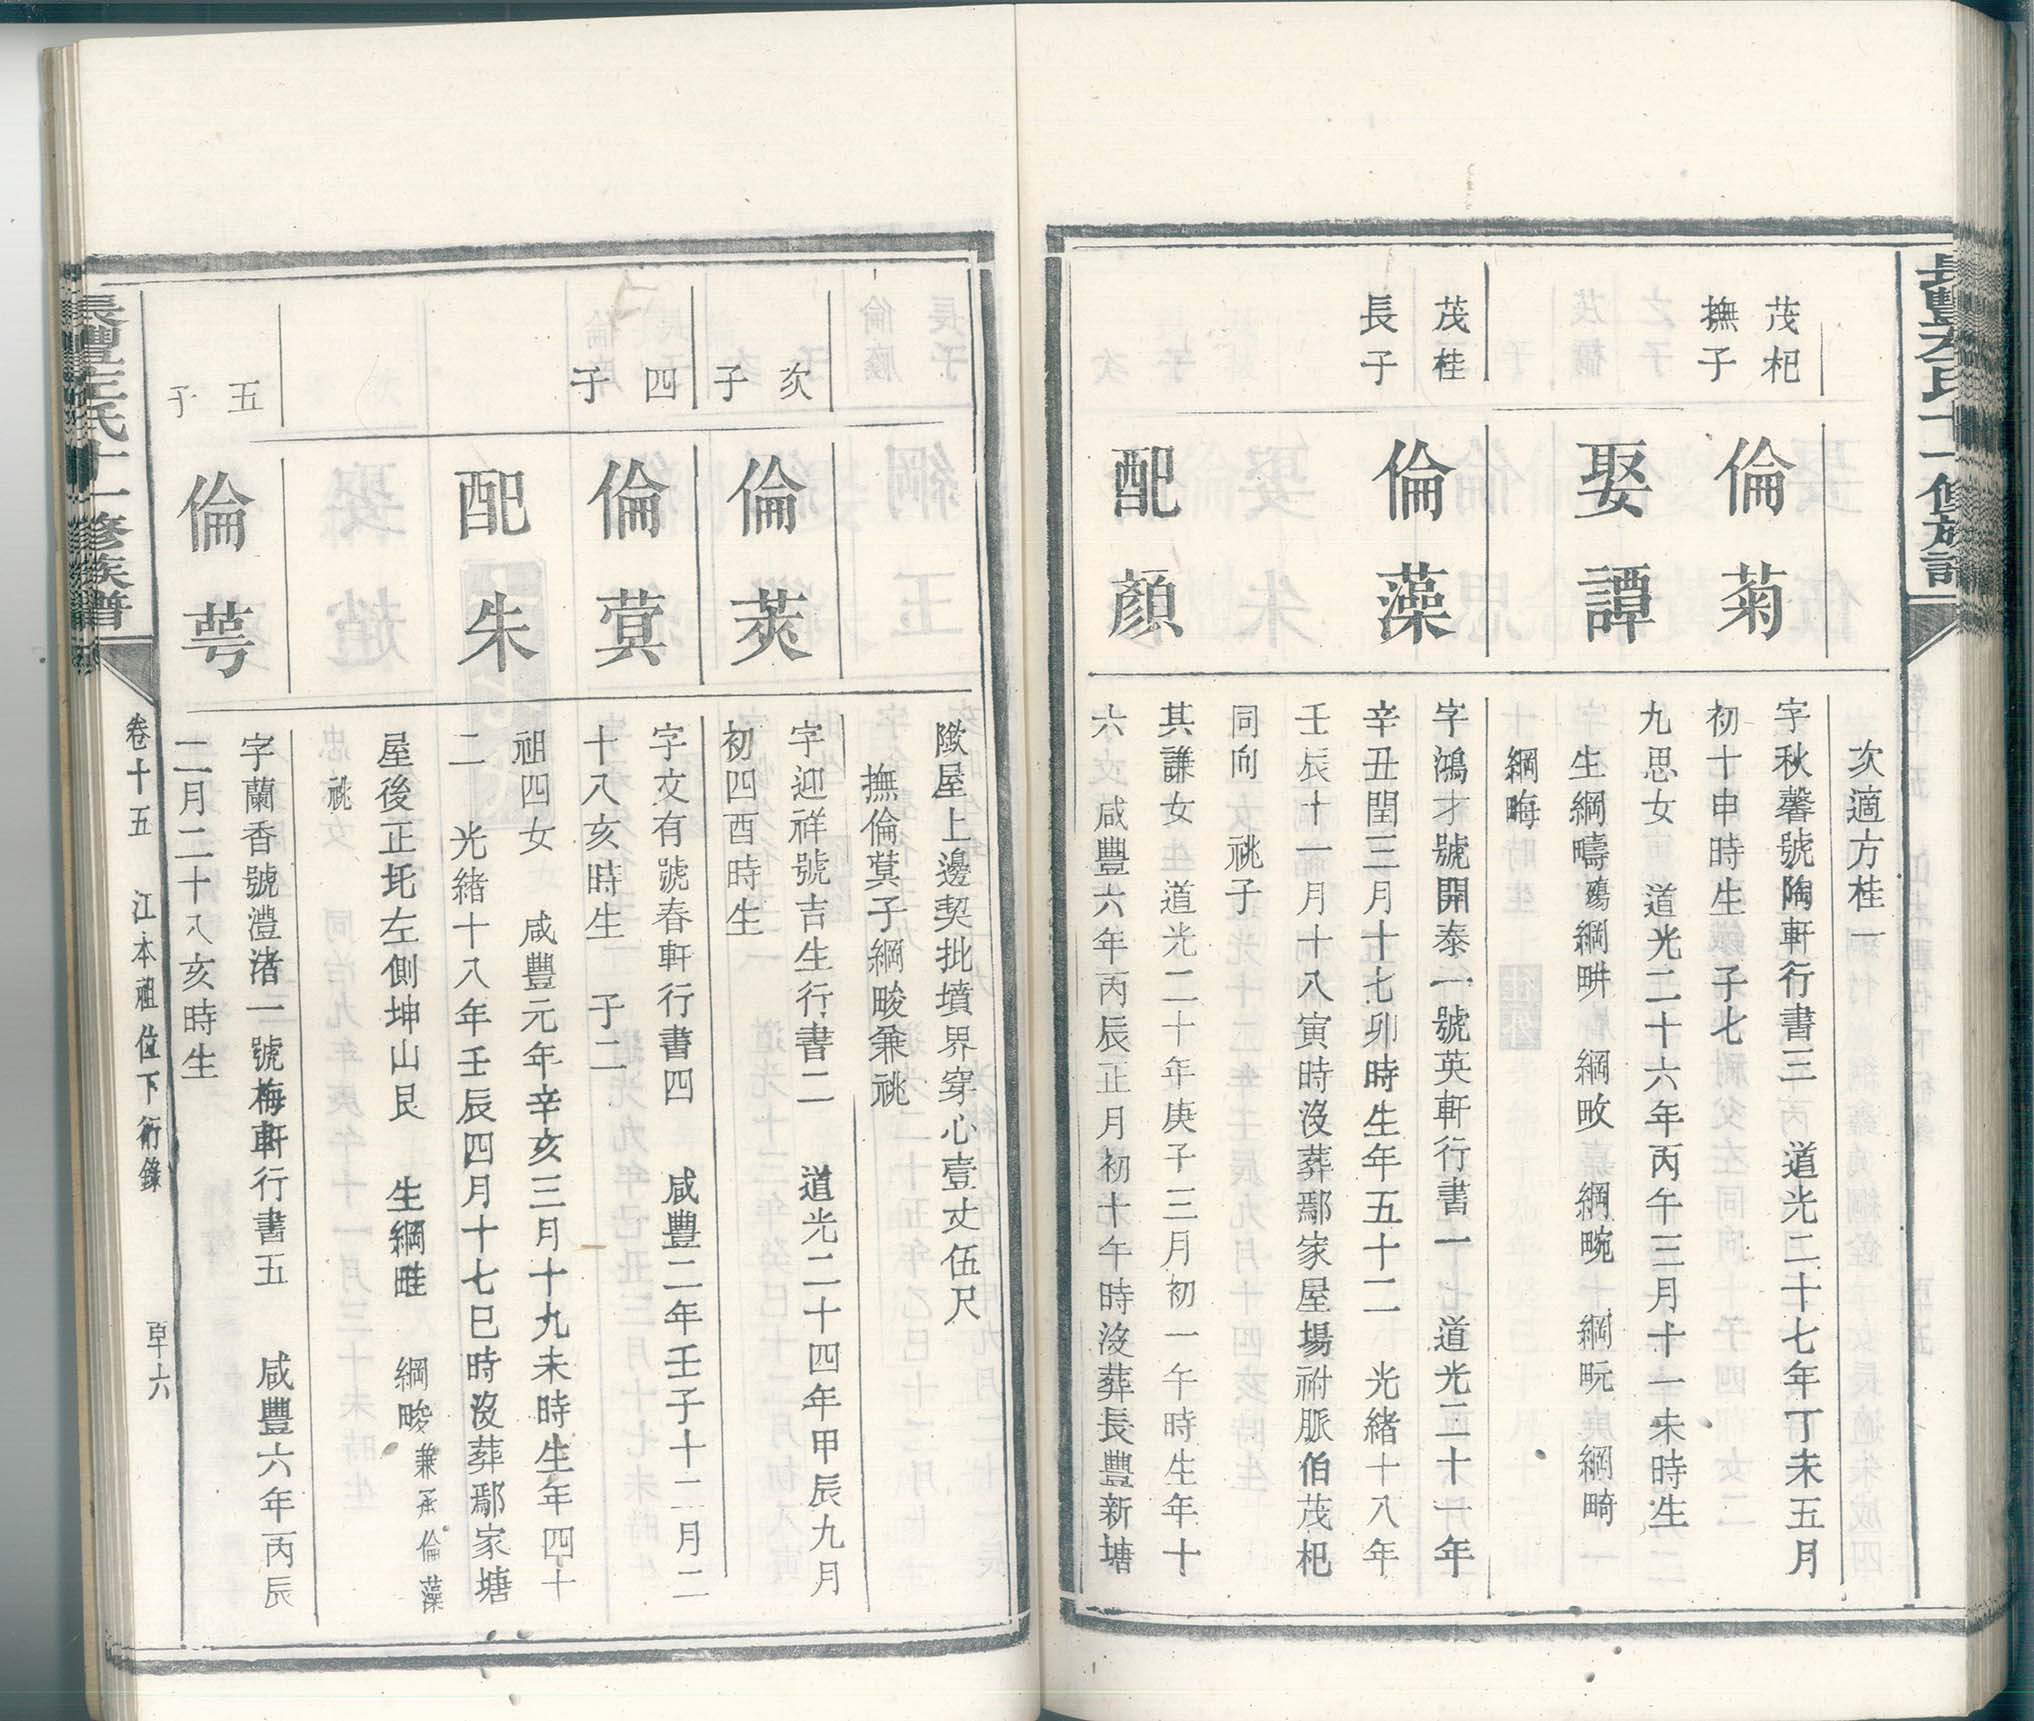 長豐左氏十一修族譜
次適方桂一
茂杞
撫子
倫菊
字秋馨號陶軒行書三 道光二十七年丁未五月
初十申時生 子七
娶譚
九思女 道光二十六年丙午三月十一未時生
生綱疇殤綱畊 綱畋 綱畹 綱畈 綱畸
綱晦
茂桂
長子
倫藻
字鴻才號開泰一號英軒行書一 道光二十一年
辛丑閏三月十七卯時生年五十二 光緒十八年
壬辰十一月十八寅時沒葬鄢家屋場祔脈伯茂杞
同向 祧子
配顏
其謙女 道光二十年庚子三月初一午時生年十
六 咸豐六年丙辰正月初十午時沒葬長豐新塘
屋上邊契批墳界穿心壹丈伍尺
撫倫蓂子綱畯兼祧
次子
倫莢
字迎祥號吉生行書二 道光二十四年甲辰九月
初四酉時生
四子
倫蓂
字文有號春軒行書四 咸豐二年壬子十二月二
十八亥時生 子二
配朱
祖四女 咸豐元年辛亥三月十九未時生年四十
二 光緒十八年壬辰四月十七巳時沒葬鄢家塘
屋後正坉左側坤山艮 生綱畦 綱畯兼承倫藻
祧
五子
倫萼
字蘭香號澧渚一號梅軒行書五 咸豐六年丙辰
二月二十八亥時生
長豐左氏十一修族譜
卷十五 江本祖位下衍錄 草六